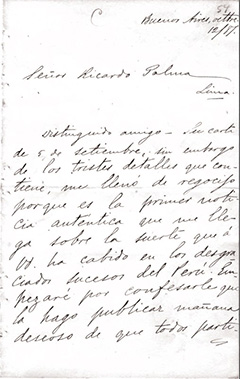 54
C
Buenos Aires, octbre
12/81.
Señor Ricardo Palma
Lima.
Distinguido amigo — Su carta
de 5 de setiembre, sin embargo
de los tristes detalles que con-
tiene, me llenó de regocijo
porque es la primer noti-
cia autentica que me lle-
ga sobre la suerte que á
Vd. ha cabido en los desgra-
ciados sucesos del Perú. Em-
pezaré por confesarle que
la hago publicar mañana
deseoso de que todos parti-